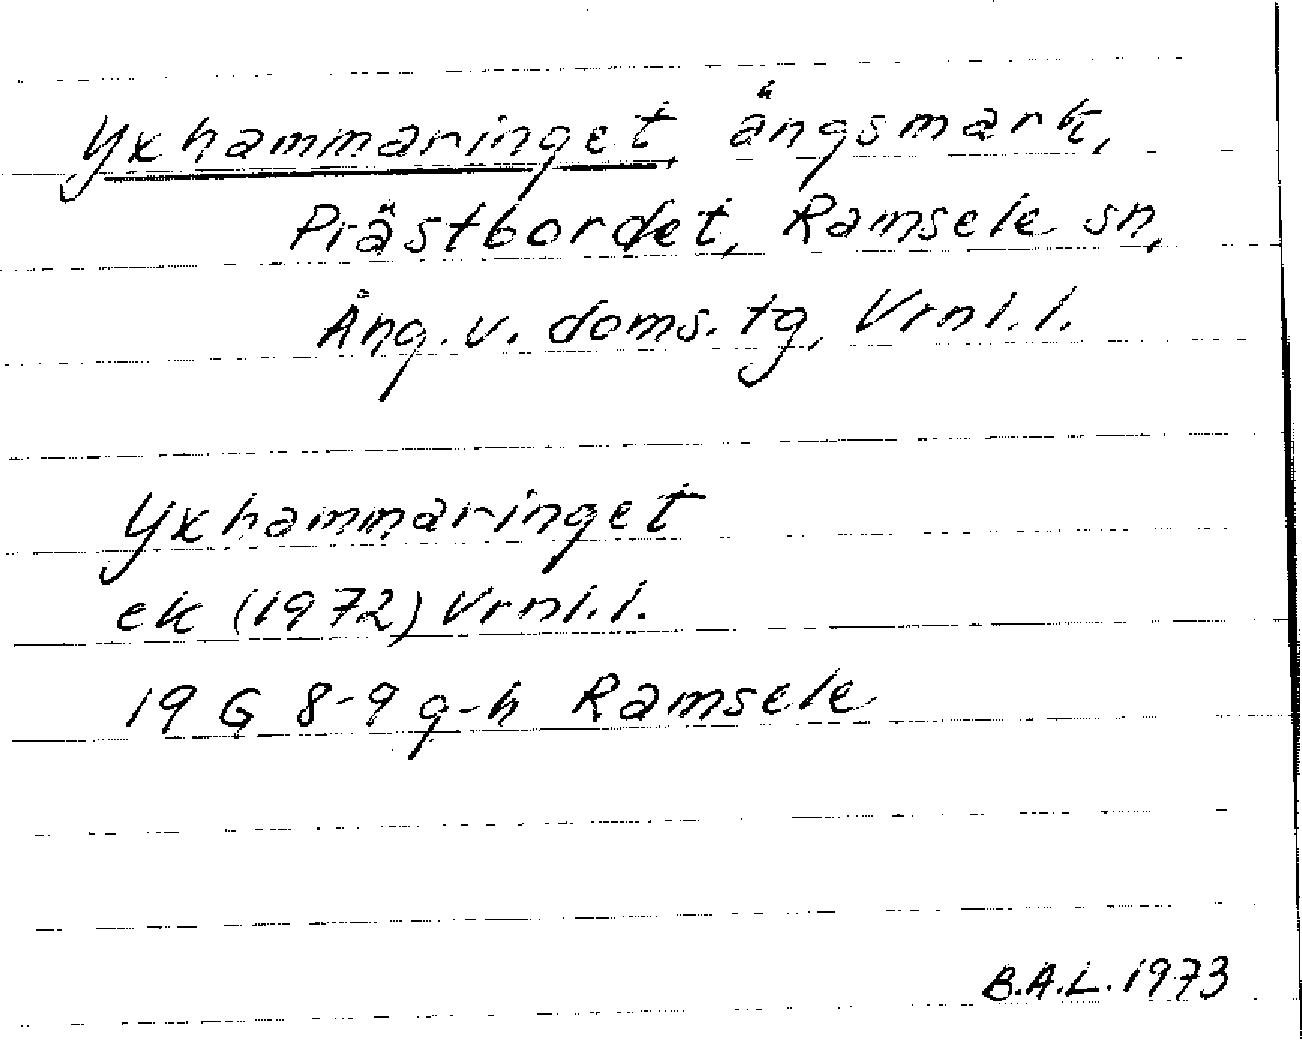 Yxhammaringet, ängsmark,
Prästbordet, Ramsele sn,
Ång. v. doms. tg, Vrnl. l.
Yxhammaringet
ek (1972) Vrnl. l.
19 G 8-9 g-h Ramsele
B.A.L. 1973